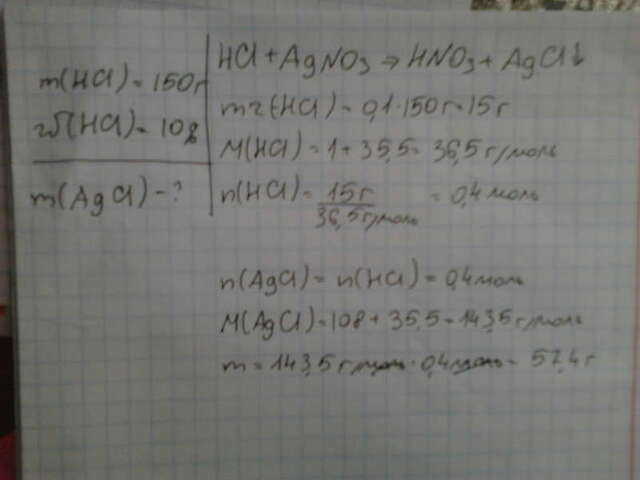 m(HCl) = 150г
ω(HCl) = 10%
m(AgCl) - ?
HCl + AgNO3 ⇒ HNO3 + AgCl↓
mч(HCl) = 0,1·150г = 15г
M(HCl) = 1 + 35,5 = 36,5 г/моль
n(HCl) = 15г / 36,5г/моль = 0,4 моль
n(AgCl) = n(HCl) = 0,4 моль
M(AgCl) = 108 + 35,5 = 143,5 г/моль
m = 143,5 г/моль · 0,4 моль = 57,4 г